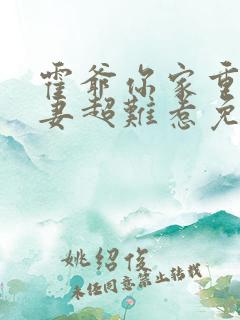 霍爷你家重
妻超難惹免
姚绍俊
未经同意禁止转载